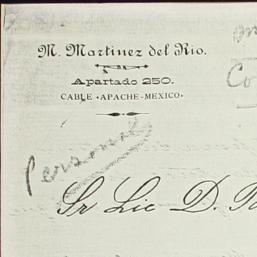 M. Martinez del Rio.
Apartado 250.
CABLE - APACHE - MEXICO.
Co
Personal
Sr Lic D.